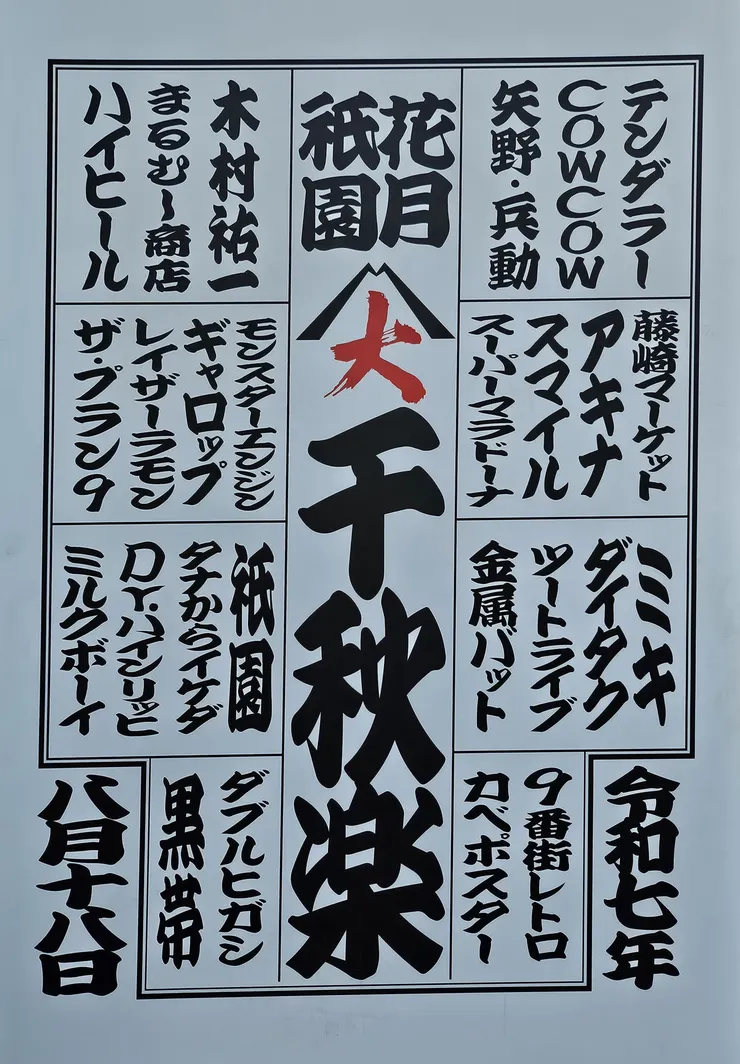 令和七年
テンダラー
COWCOW
矢野・兵動
藤崎マーケット
アキナ
スマイル
スーパーマラドーナ
ミキ
ダイタク
ツートライブ
金属バット
9番街レトロ
カベポスター
花月
祇園
大
千秋楽
木村祐一
まるむし商店
ハイヒール
モンスターエンジン
ギャロップ
レイザーラモン
ザ・プラン9
祇園
タナからイケダ
Dr.ハインリッヒ
ミルクボーイ
ダブルヒガシ
黒帯
八月十八日